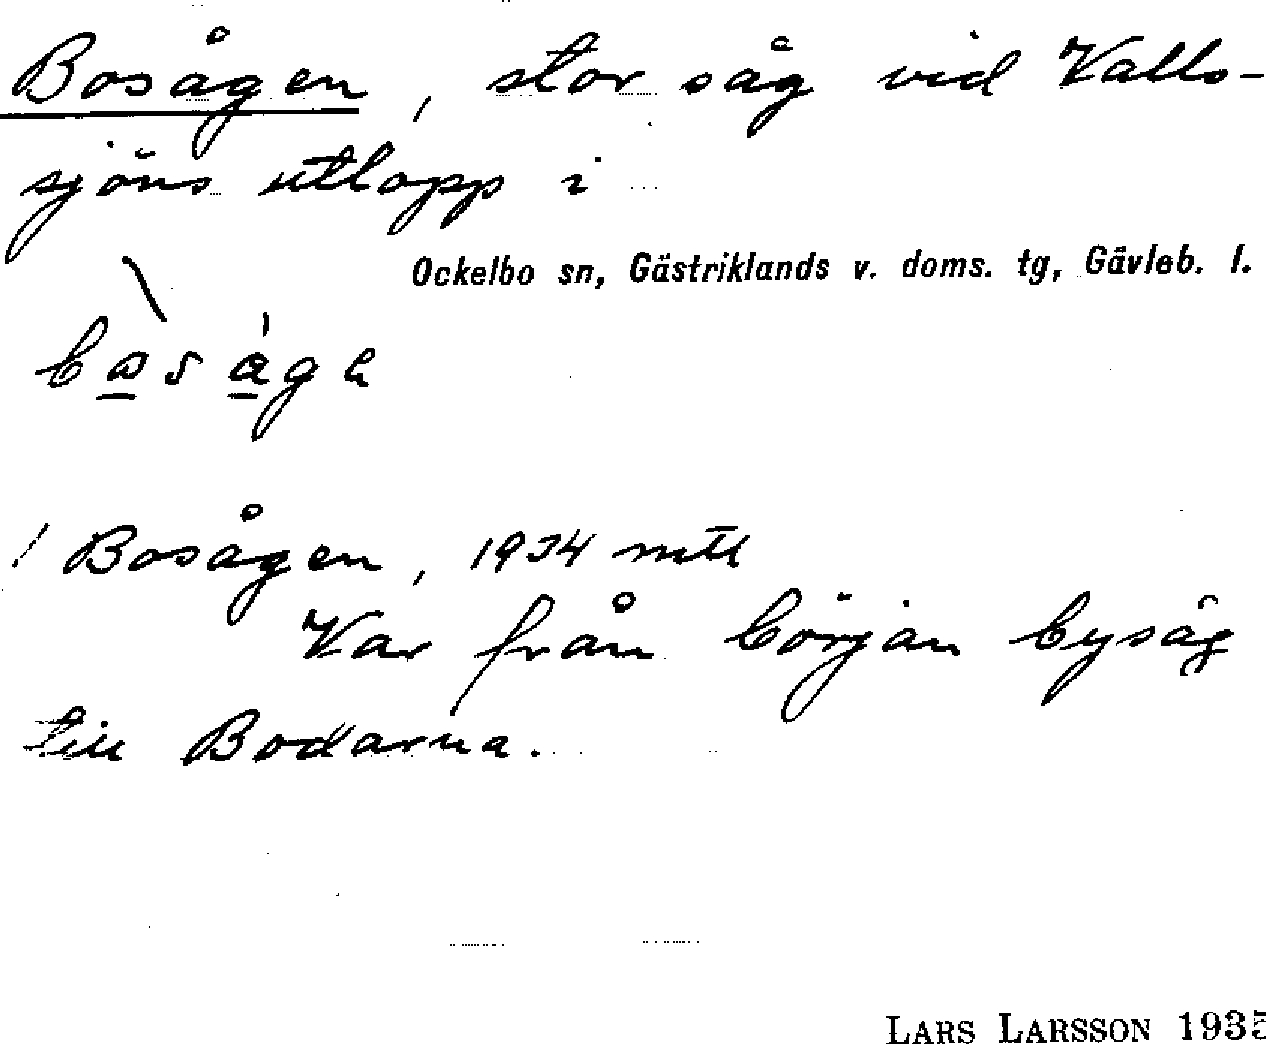 Bosågen, stor såg vid Valls-
sjöns utlopp i
Ockelbo sn, Gästriklands v. doms. tg, Gävleb. l.
/ Bosågen, 1934 mtl
Var från början bysåg
till Bodarna.
LARS LARSSON 1935